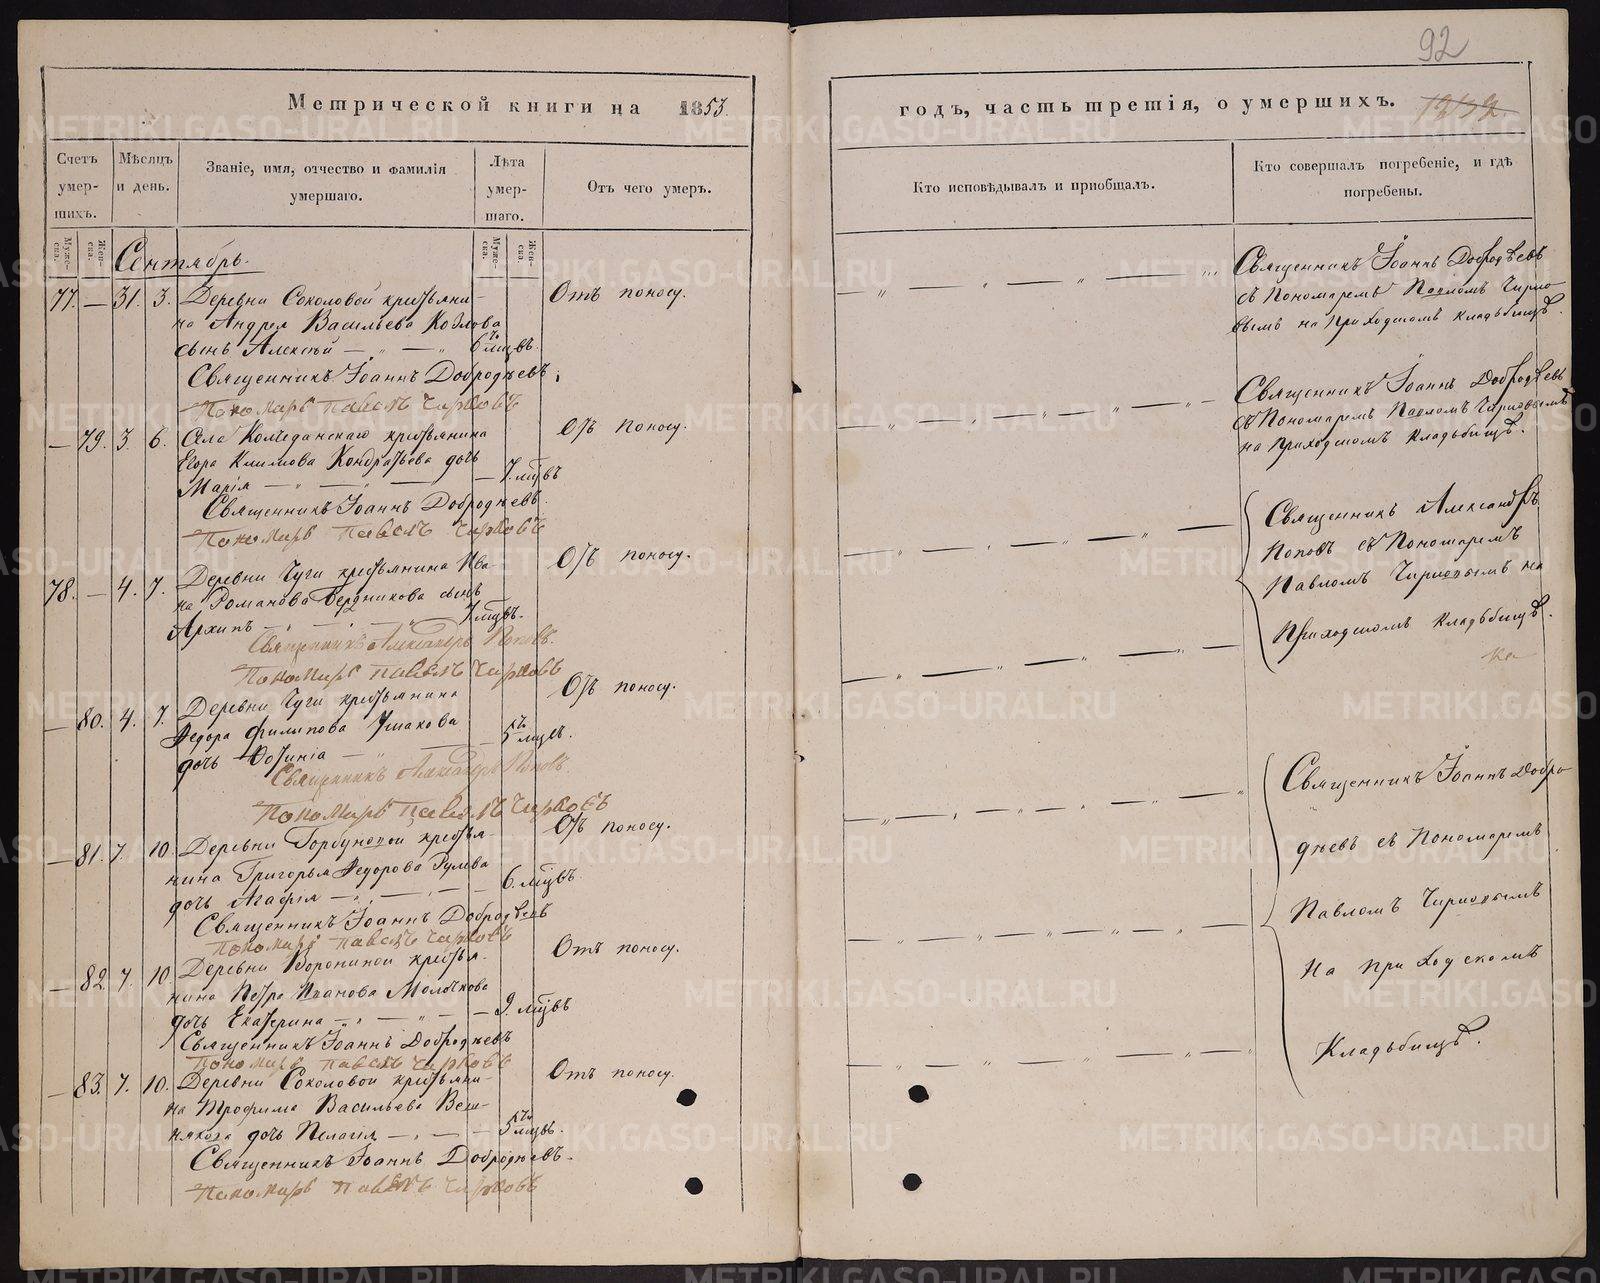 92
Метрической книги на 1853.
годъ, часть третія, о умершихъ.
Счетъ умер-шихъ.
Мѣсяцъ и день.
Званіе, имя, отчество и фамилія умершаго.
Лѣта умер-шаго.
Отъ чего умеръ.
Кто исповѣдывалъ и пріобщалъ.
Кто совершалъ погребеніе, и гдѣ погребены.
Муже-ска.
Жен-ска.
Муже-ска.
Жен-ска.
Сентябрь.
77. — 31. 3. Деревни Соколовой крестьяни- Отъ поносу.
на Андрея Васильева Козлова
сынъ Алексѣй — 6 мцвъ.
Священникъ Іоаннъ Добродѣевъ
Пономарь Павелъ Чирковъ
— 79. 3. 6. Села Колчеданскаго крестьянина Отъ поносу.
Егора Климова Кондратьева дочь
Марія — 7. мцвъ
Священникъ Іоаннъ Добродѣевъ.
Пономарь Павелъ Чирковъ
78. — 4. 7. Деревни Чуги крестьянина Ива- Отъ поносу.
на Романова Бердникова сынъ
Архипъ — 7 мцвъ.
Священникъ Александръ Поповъ.
Пономарь Павелъ Чирковъ
— 80. 4. 7. Деревни Чуги крестьянина Отъ поносу.
Федора Филипова Ушакова
дочь Фотинія — 5 мцвъ.
Священникъ Александръ Поповъ.
Пономарь Павелъ Чирковъ
— 81. 7. 10. Деревни Горбуновой крестья- Отъ поносу.
нина Григорья Федорова
дочь Агафія — 6. мцвъ.
Священникъ Іоаннъ Добродѣевъ
Пономарь Павелъ Чирковъ
— 82. 7. 10. Деревни Ворониной крестья- Отъ поносу.
нина Петра Иванова
дочь Екатерина — 9. мцвъ
Священникъ Іоаннъ Добродѣевъ
Пономарь Павелъ Чирковъ
— 83. 7. 10. Деревни Соколовой крестьяни- Отъ поносу.
на Трофима Васильева Веш-
някова дочь Пелагія — 5 мцвъ.
Священникъ Іоаннъ Добродѣевъ.
Пономарь Павелъ Чирковъ
Священникъ Іоаннъ Добродѣевъ
съ Пономаремъ Павломъ Чирко-
вымъ на Приходскомъ кладьбищѣ.
Священникъ Іоаннъ Добродѣевъ
съ Пономаремъ Павломъ Чирковымъ
на Приходскомъ кладьбищѣ.
Священникъ Александръ
Поповъ съ Пономаремъ
Павломъ Чирковымъ на
Приходскомъ кладьбищѣ.
Священникъ Іоаннъ Добро
дѣевъ съ Пономаремъ
Павломъ Чирковымъ
На Приходскомъ
Кладьбищѣ.
METRIKI.GASO-URAL.RU